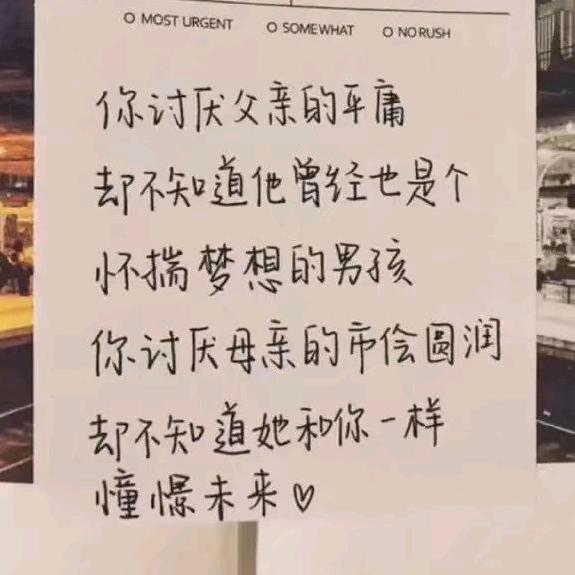 O MOST URGENT O SOMEWHAT O NO RUSH
你讨厌父亲的平庸
却不知道他曾经也是个
怀揣梦想的男孩
你讨厌母亲的市侩圆润
却不知道她和你一样
憧憬未来♡